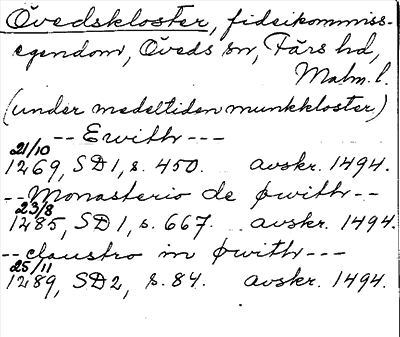 Övedskloster, fideikommiss-
egendom, Öveds sn, Färs hd,
Malm. l.
(under medeltiden munkkloster)
-- Ewith ---
21/10
1269, SD1, s. 450. avskr. 1494.
-- Monasterio de øwith --
23/8
1285, SD1, s. 667. avskr. 1494.
-- claustro in øwith ---
25/11
1289, SD2, s. 84. avskr. 1494.